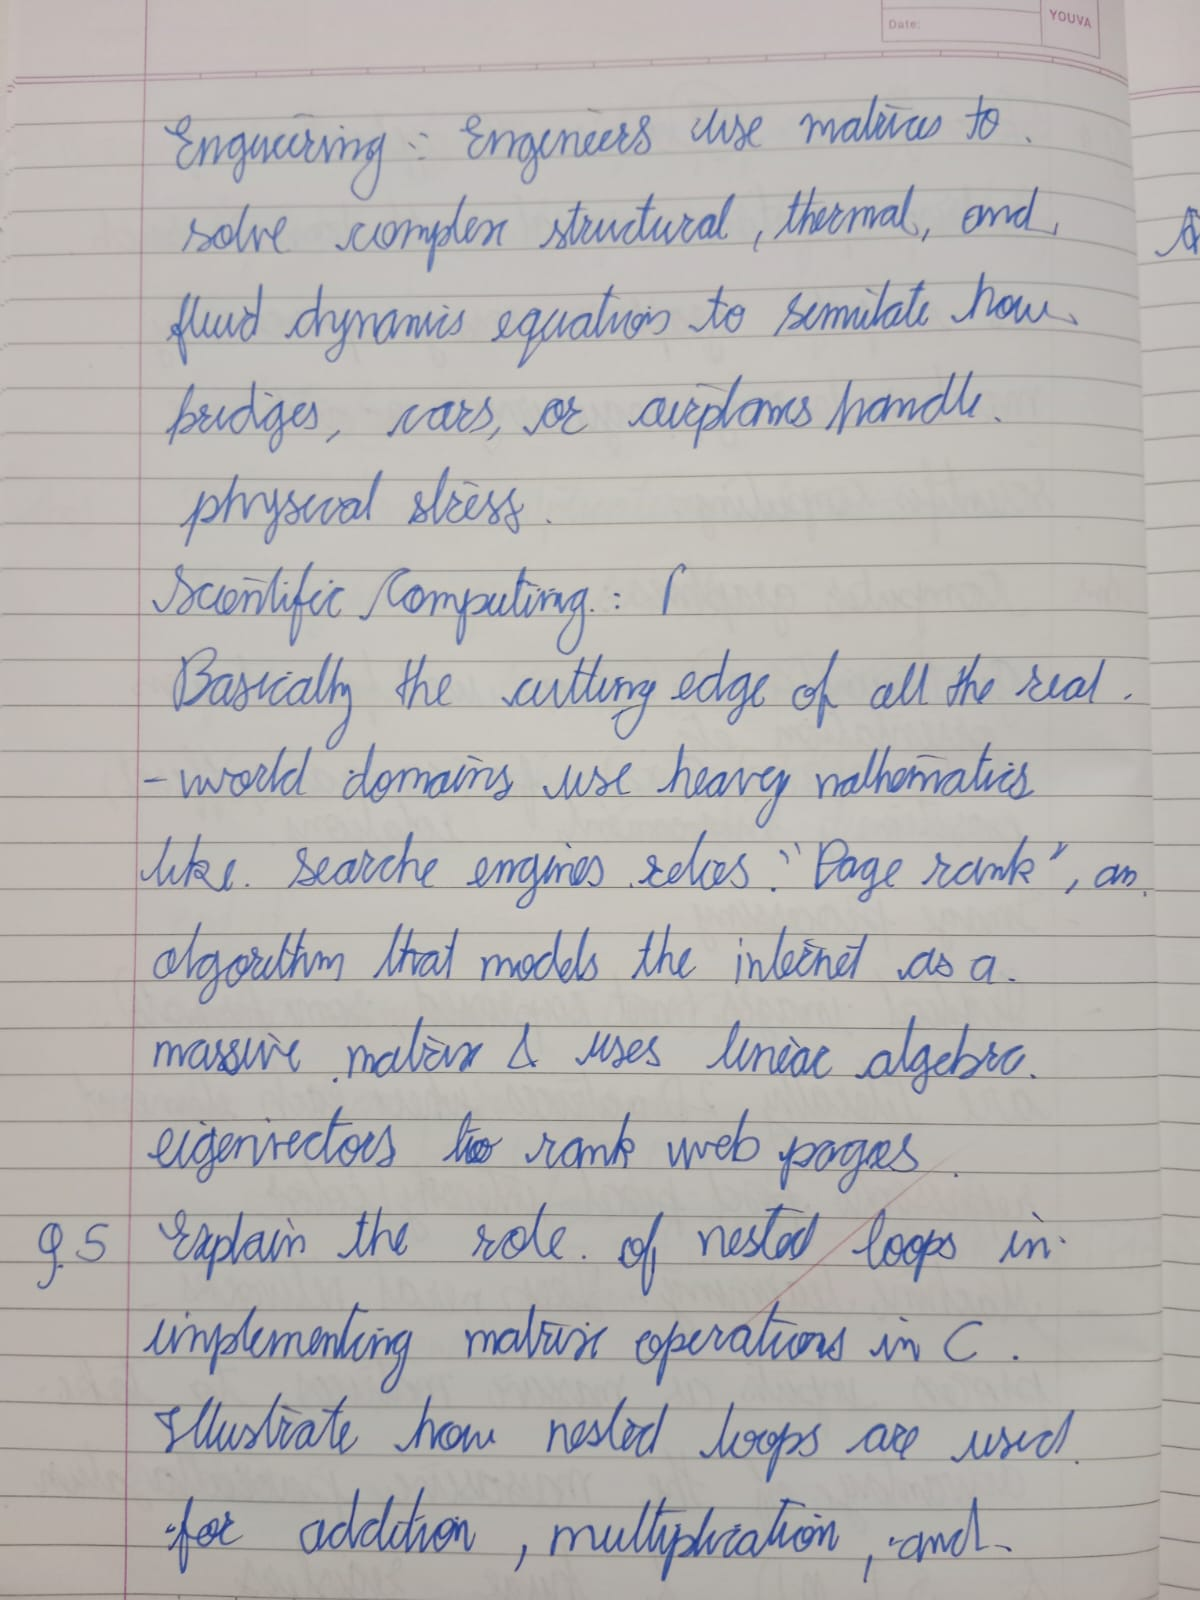 Date:
YOUVA
Engineering :- Engeneers use matrices to
solve complex structural, thermal, and
fluid dynamis equations to semilate how
bridiges, cars, or airplanes handle.
physical stress.
Scientific Computing :
Basically the cutting edge of all the real.
-world domains use heavy mathematics
like. searche engines relies "Page rank", an
algorithm that models the internet as a.
massive matrix & uses linear algebra.
eigenvectors to rank web pages.
Q.5 Explain the role of nested loops in
implementing matrix operations in C.
Illustrate how nested loops are used.
for addition, multiplication, and